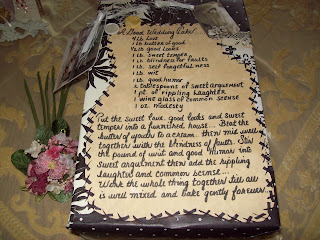 A Good Wedding Cake
4 lb. Love
1 lb butter of good
½ lb good looks
1 lb. sweet temper
1 lb. blindness for faults
1 lb. self forgetfulness
1 lb. wit
1 lb. good humor
2 tablespoons of sweet argument
1 pt. of rippling laughter
1 wine glass of common sense
1 oz. modesty
Put the sweet love, good looks and sweet
temper into a furnished house. Beat the
butter of youth to a cream, then mix well
together with the blindness of faults. Stir
the pound of wit and good humor into
sweet argument then add the rippling
laughter and common sense.
Work the whole thing together till all
is well mixed and bake gently forever.